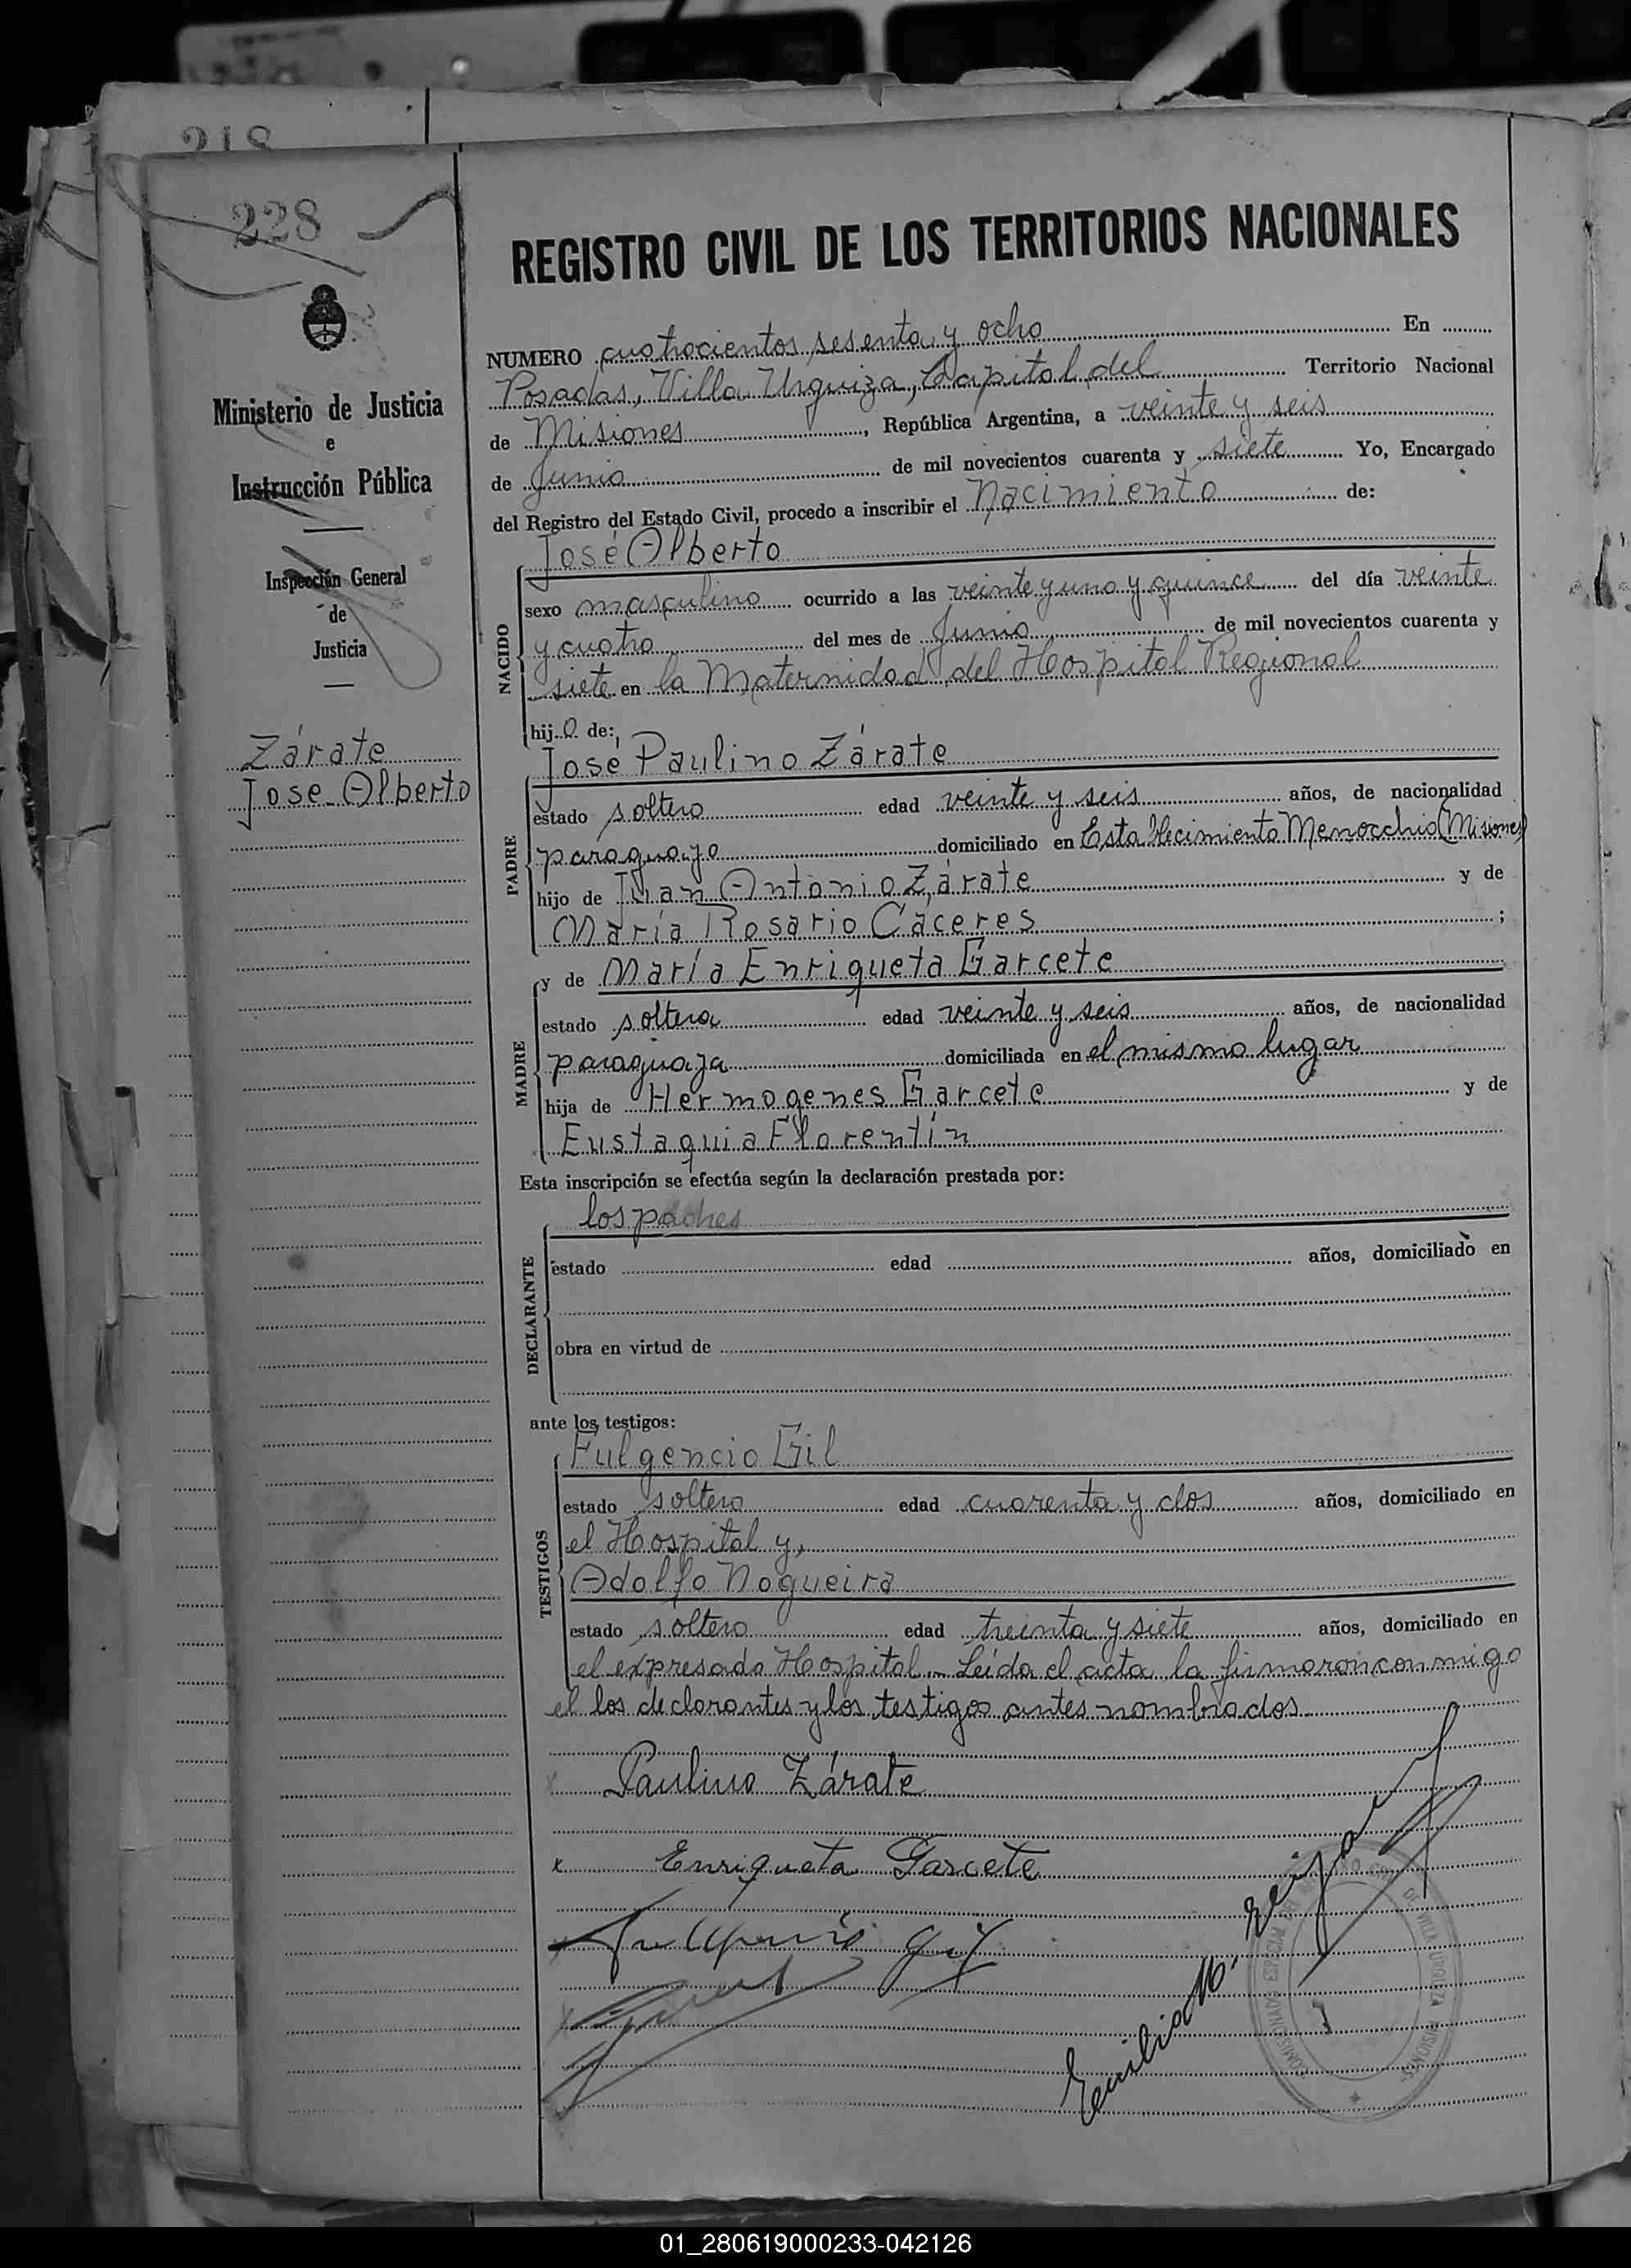 218
228
Ministerio de Justicia
e
Instrucción Pública
Inspección General
de
Justicia
Zárate
Jose Alberto
REGISTRO CIVIL DE LOS TERRITORIOS NACIONALES
NUMERO cuatrocientos sesenta y ocho En
Posadas, Villa Urquiza, Capital del Territorio Nacional
de Misiones, República Argentina, a veinte y seis
de Junio de mil novecientos cuarenta y siete Yo, Encargado
del Registro del Estado Civil, procedo a inscribir el Nacimiento de:
José Alberto
NACIDO
sexo masculino ocurrido a las veinte y uno y quince del día veinte
y cuatro del mes de Junio de mil novecientos cuarenta y
siete en la Maternidad del Hospital Regional
hijo de:
José Paulino Zárate
PADRE
estado soltero edad veinte y seis años, de nacionalidad
paraguayo domiciliado en Establecimiento Menocchio (Misiones)
hijo de Juan Antonio Zárate y de
María Rosario Cáceres ;
y de María Enriqueta Garcete
MADRE
estado soltera edad veinte y seis años, de nacionalidad
paraguaya domiciliada en el mismo lugar
hija de Hermogenes Garcete y de
Eustaquia Florentín
Esta inscripción se efectúa según la declaración prestada por:
los padres
DECLARANTE
estado edad años, domiciliado en
obra en virtud de
ante los testigos:
Fulgencio Gil
TESTIGOS
estado soltero edad cuarenta y dos años, domiciliado en
el Hospital y,
Adolfo Nogueira
estado soltero edad treinta y siete años, domiciliado en
el expresado Hospital.- Leída el acta la firmaron conmigo
el los declarantes y los testigos antes nombrados
x Paulino Zárate
x Enriqueta Garcete
x Fulgencio Gil
x
Emilio M.
COMISIONADO ESPECIAL DEL REGISTRO CIVIL DE VILLA URQUIZA MISIONES
01_280619000233-042126